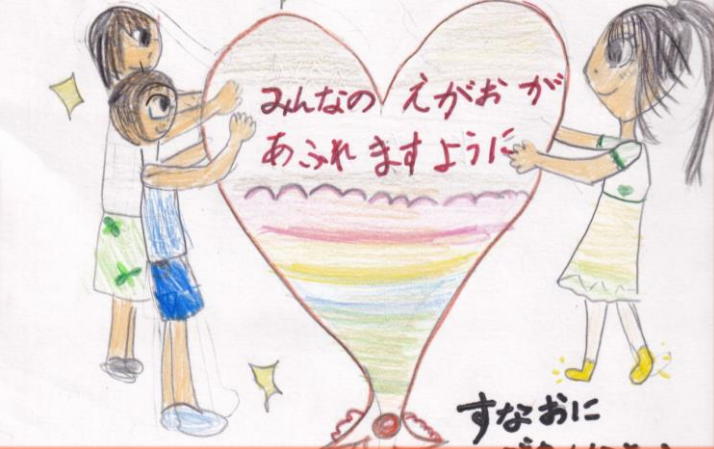 みんなの えがおが
あふれますように
すなおに